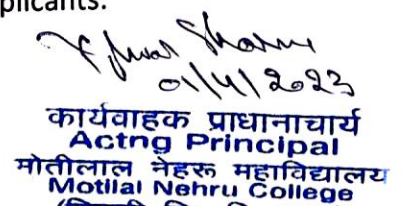 plicants.
Sharma
01/4/2023
कार्यवाहक प्राधानाचार्य
Actng Principal
मोतीलाल नेहरू महाविद्यालय
Motilal Nehru College